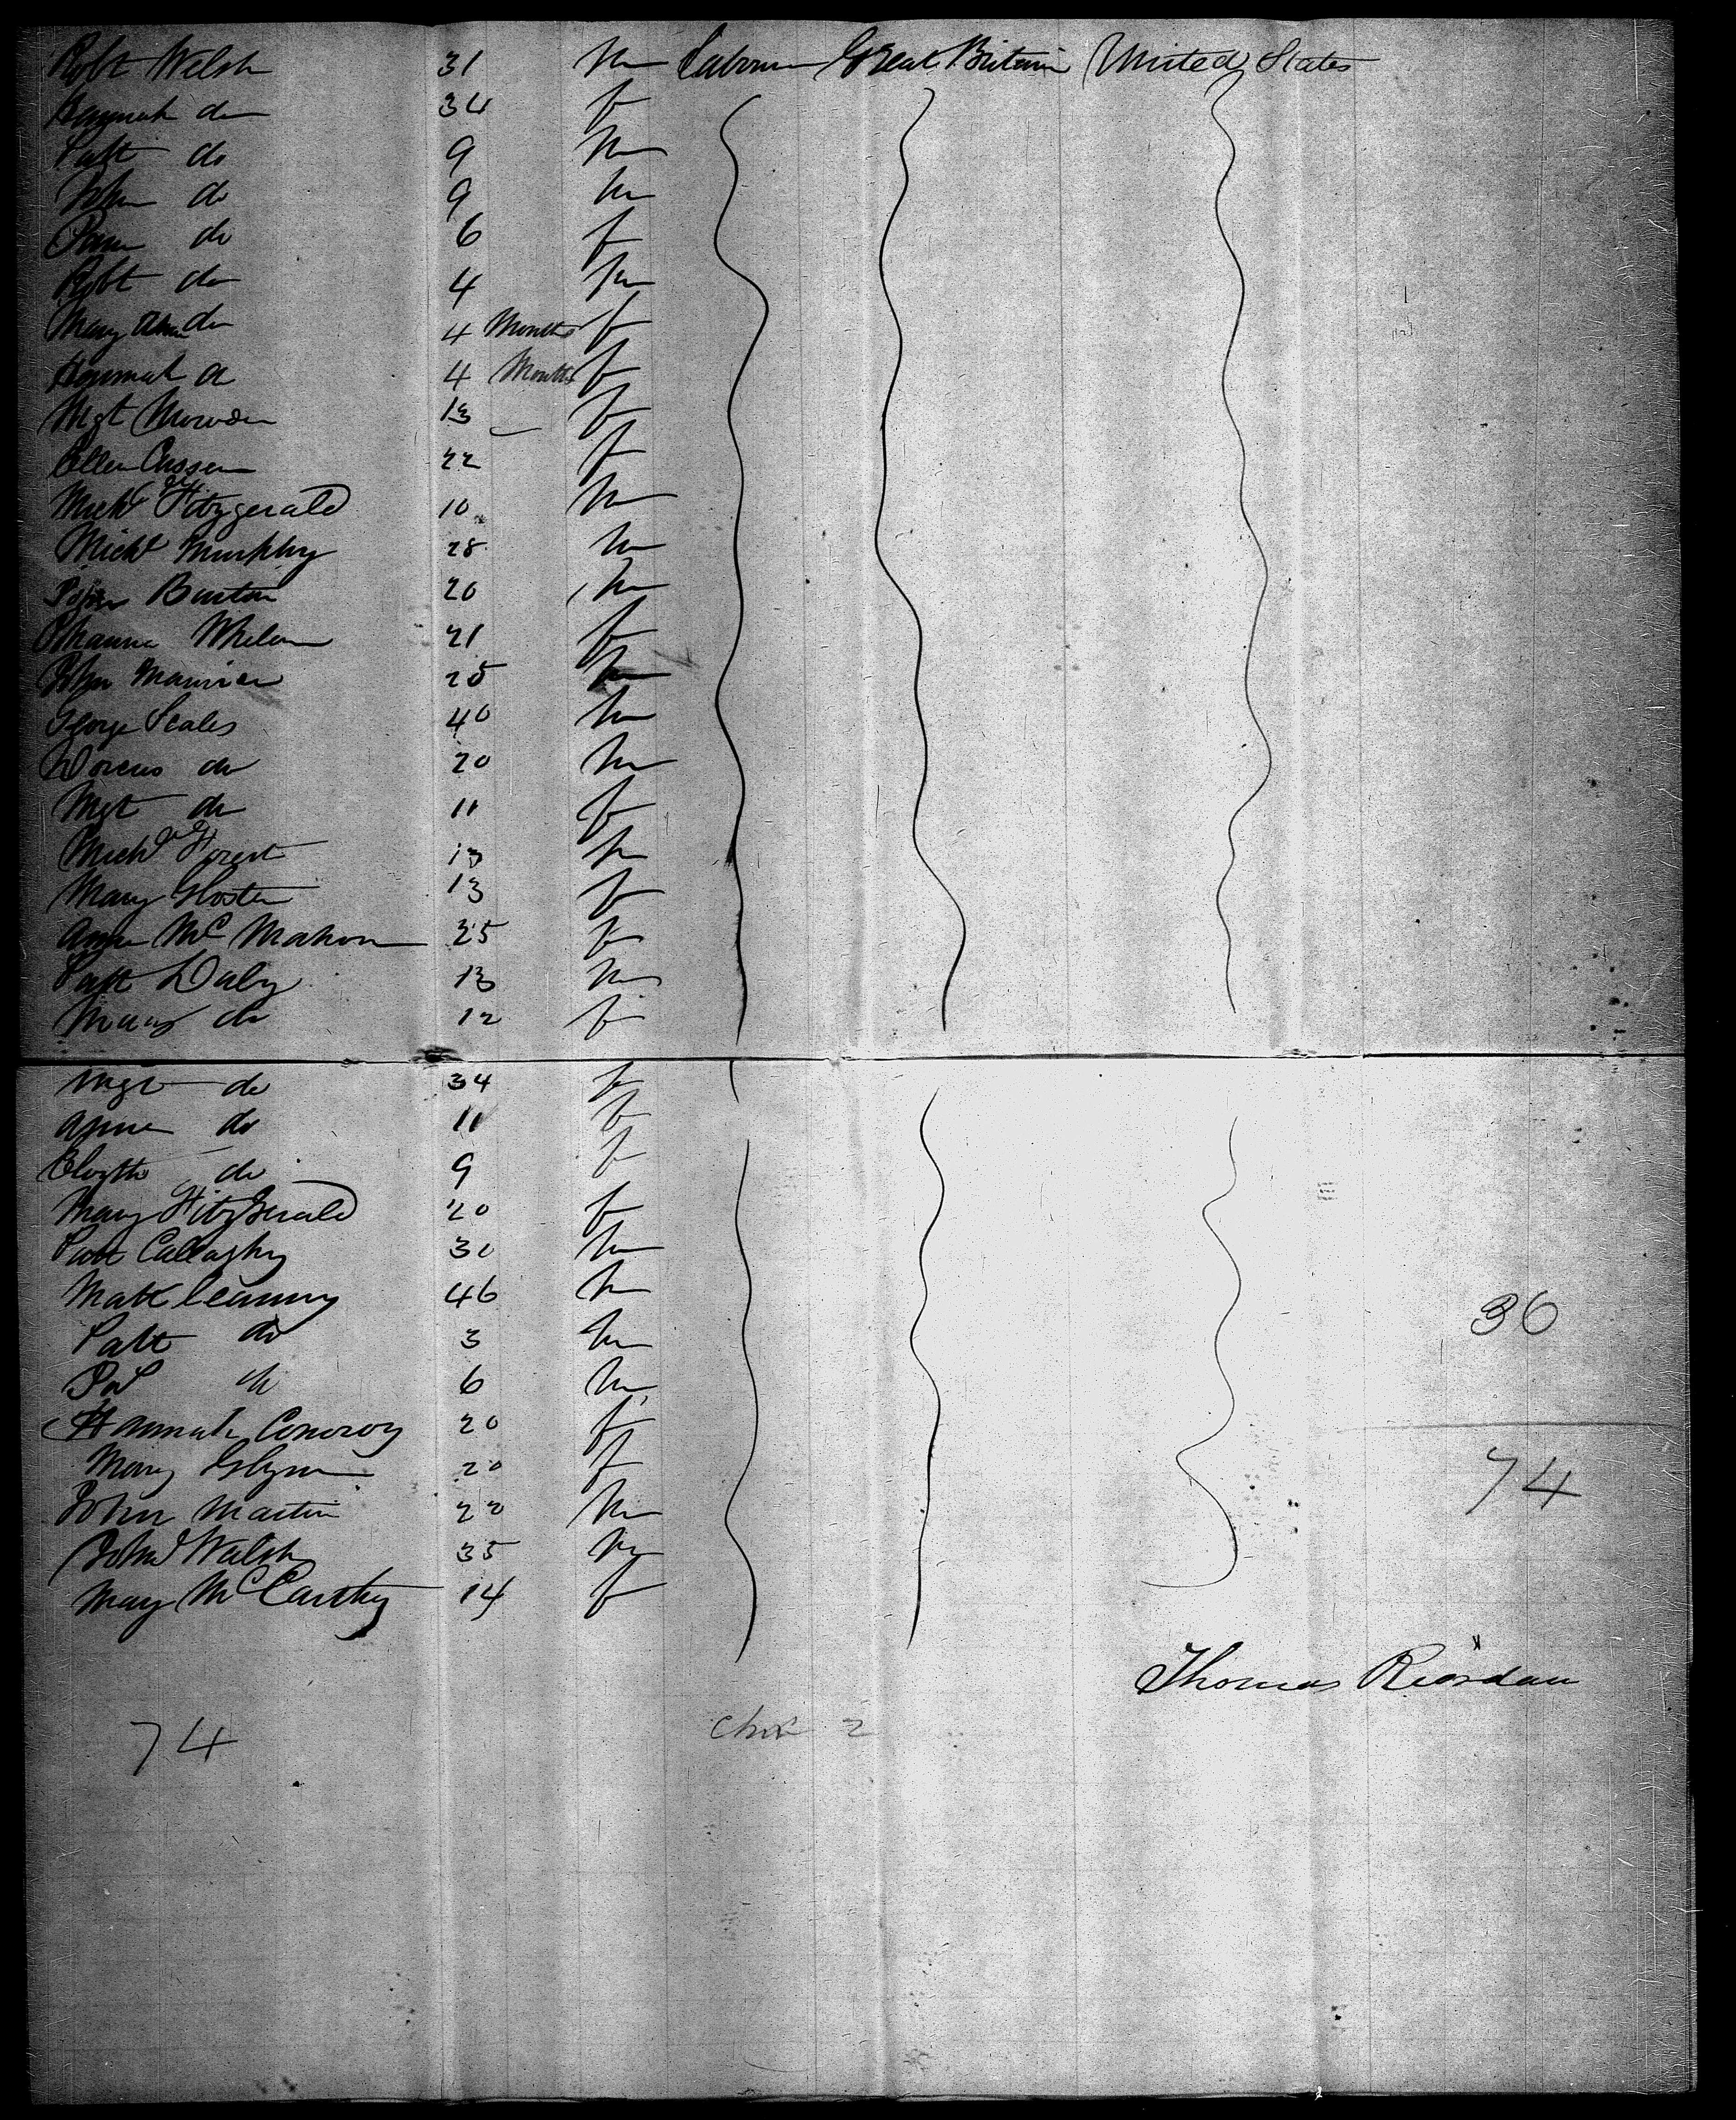 Robt Welsh 31 m Labourer Great Britain United States
Hannah do 34 f
Patt do 9 m
John do 9 m
do 6 f
Robt do 4 m
Mary Ann do 4 Months f
Hannah do 4 Months f
Mgt 13 f
Ellen 22 f
Michl Fitzgerald 10 m
Michl Murphy 28 m
Burton 20 m
Johanna Whelan 21 f
John 25 m
George Scales 40 m
Dorcus do 20 m
Mgt do 11 f
Michl Forest 13 m
Mary Gloster 13 f
Anne McMahon 25 f
Patt Daly 13 m
Mary do 12 f
Mgt do 34 f
Anne do 11 f
Elizth do 9 f
Mary FitzGerald 20 f
Patt Callaghy 30 m
Matt Leanny 46 m
Patt do 3 m
do 6 m
36
Hannah Conroy 20 f
Mary Glynn 20 f
74
John Martin 22 m
John Walsh 35 m
Mary McCarthy 14 f
Thomas Riordan
74
2